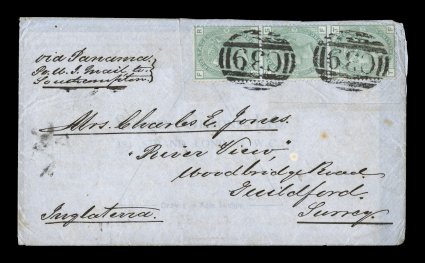 via Panama.
Southampton.
C39 C39
Mrs. Charles E. Jones.
"River View",
Woodbridge Road
Guildford.
Inglaterra. Surrey.